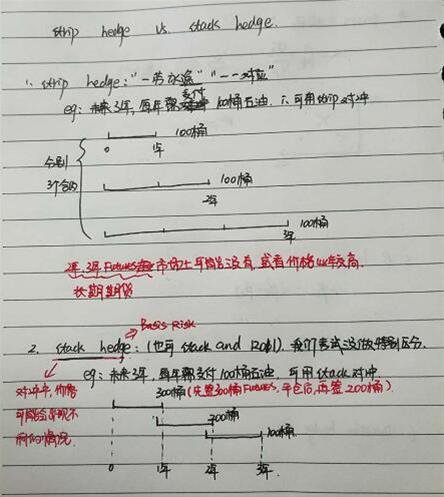 strip hedge vs. stack hedge.
1. strip hedge: "一劳永逸" "一一对应"
支付
eg: 未来3年, 每年都 100桶石油. ∴可用strip对冲
100桶
0 1年
分别
3个合约
100桶
2年
100桶
3年
2年, 3年Futures 市场上可能会没有, 或者价格 较高.
长期期货
Basis Risk
2. stack hedge: (也叫 stack and Roll). 我们考试没做特别区分.
eg: 未来3年, 每年都支付100桶石油, 可用stack对冲.
对冲中, 价格
可能会出现不
利的情况
300桶(先签300桶Futures, 平仓后, 再签200桶)
200桶
100桶
0 1年 2年 3年